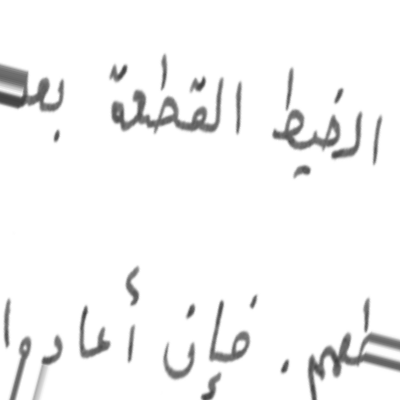 الخيط القطعة بعد
. فإن أعادوا